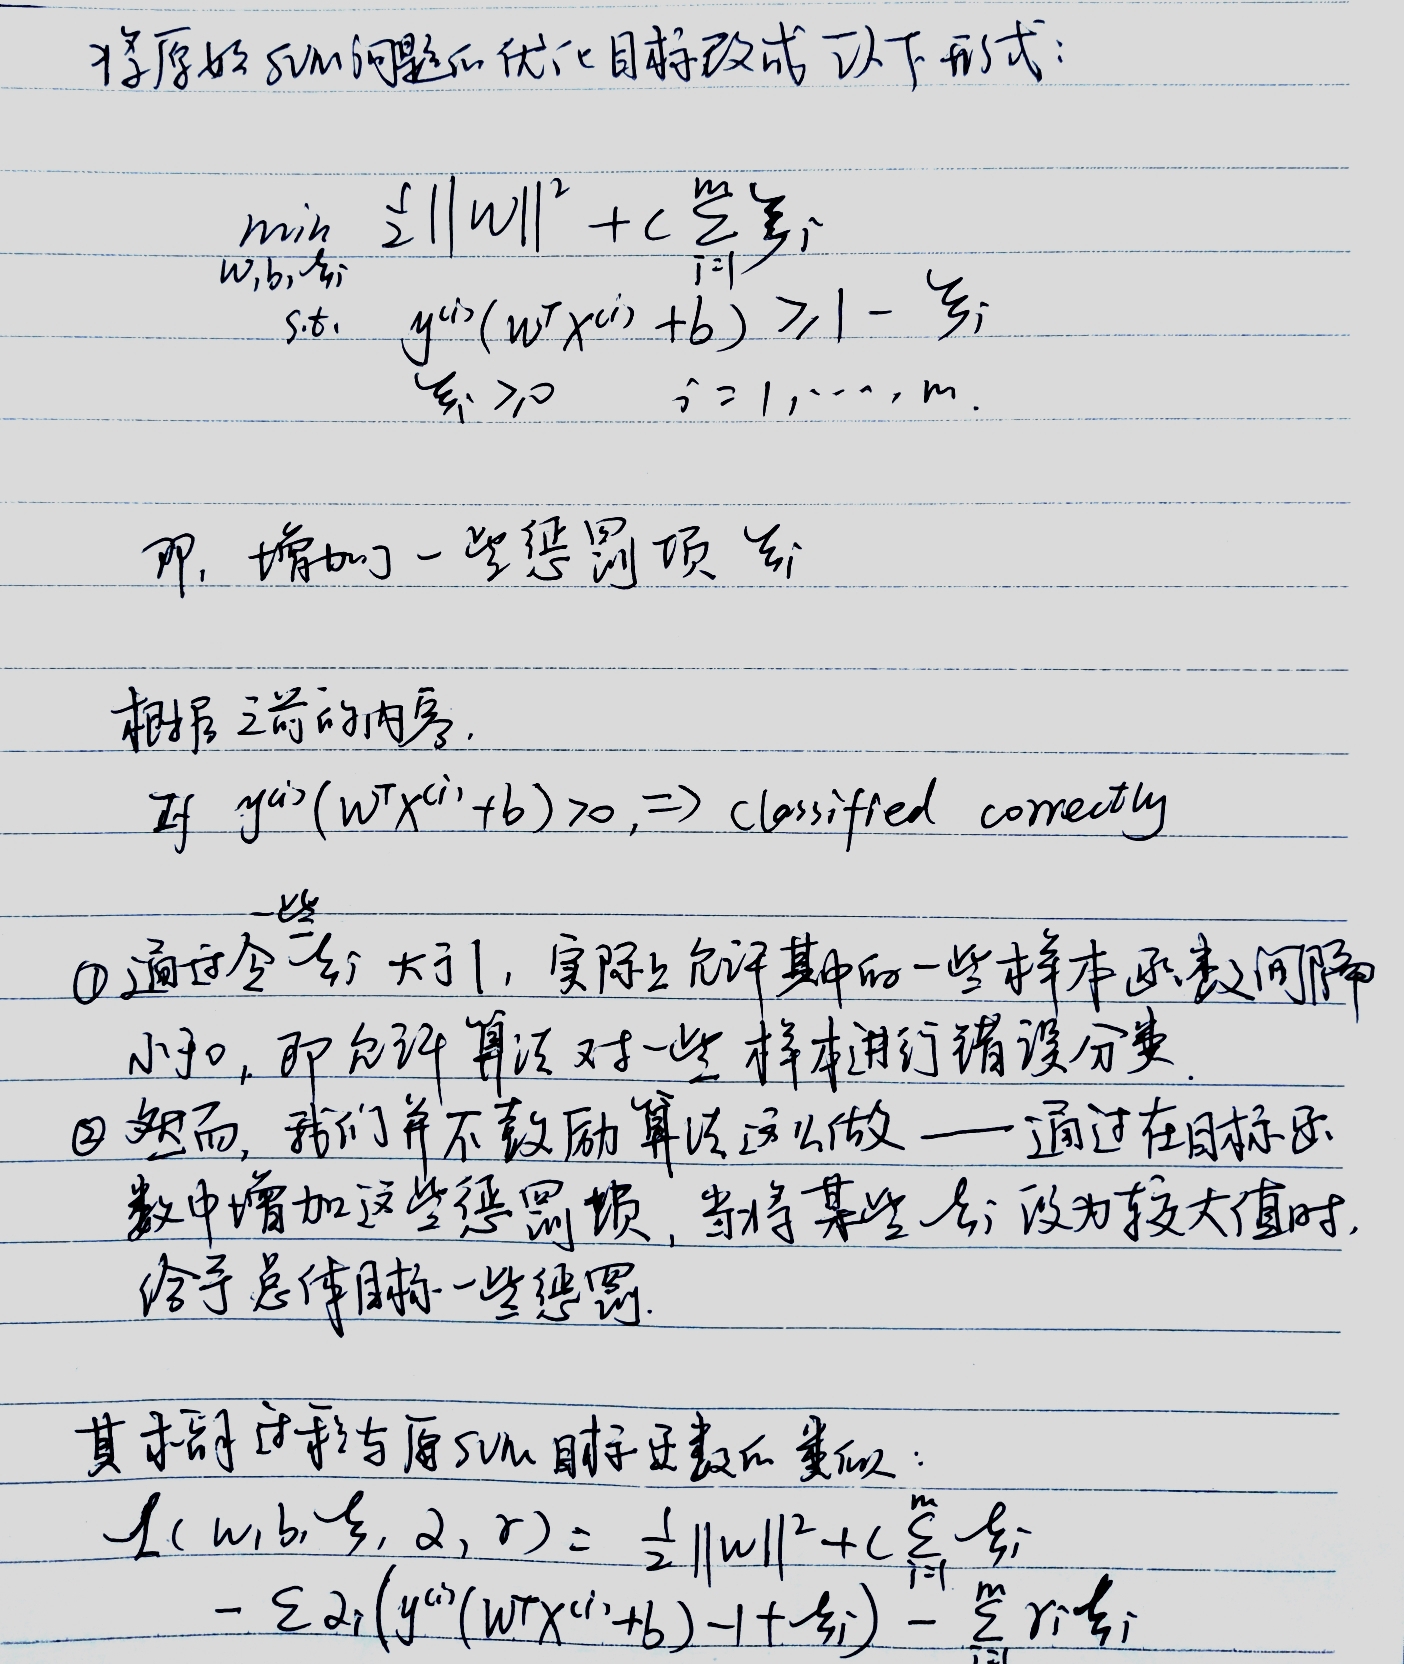 将原始SVM问题的优化目标改成以下形式:
min ½||W||² + C Σ ξi
w,b,ξi i=1 m
s.t. y⁽ⁱ⁾(WᵀX⁽ⁱ⁾+b) ≥ 1 - ξi
ξi ≥ 0 i = 1, ..., m.
即, 增加了一些惩罚项 ξi
根据之前的内容,
If y⁽ⁱ⁾(WᵀX⁽ⁱ⁾+b)>0, => classified correctly
①通过令一些ξi大于1, 实际上允许其中的一些样本函数间隔
小于0, 即允许算法对一些样本进行错误分类.
②然而, 我们并不鼓励算法这么做——通过在目标函
数中增加这些惩罚项, 当将某些ξi设为较大值时,
给予总体目标一些惩罚.
其求解过程与原SVM目标函数的类似:
L(w,b,ξ,α,r) = ½||w||² + C Σᵐᵢ₌₁ ξi
- Σαi(y⁽ⁱ⁾(WᵀX⁽ⁱ⁾+b)-1+ξi) - Σᵐᵢ₌₁ riξi